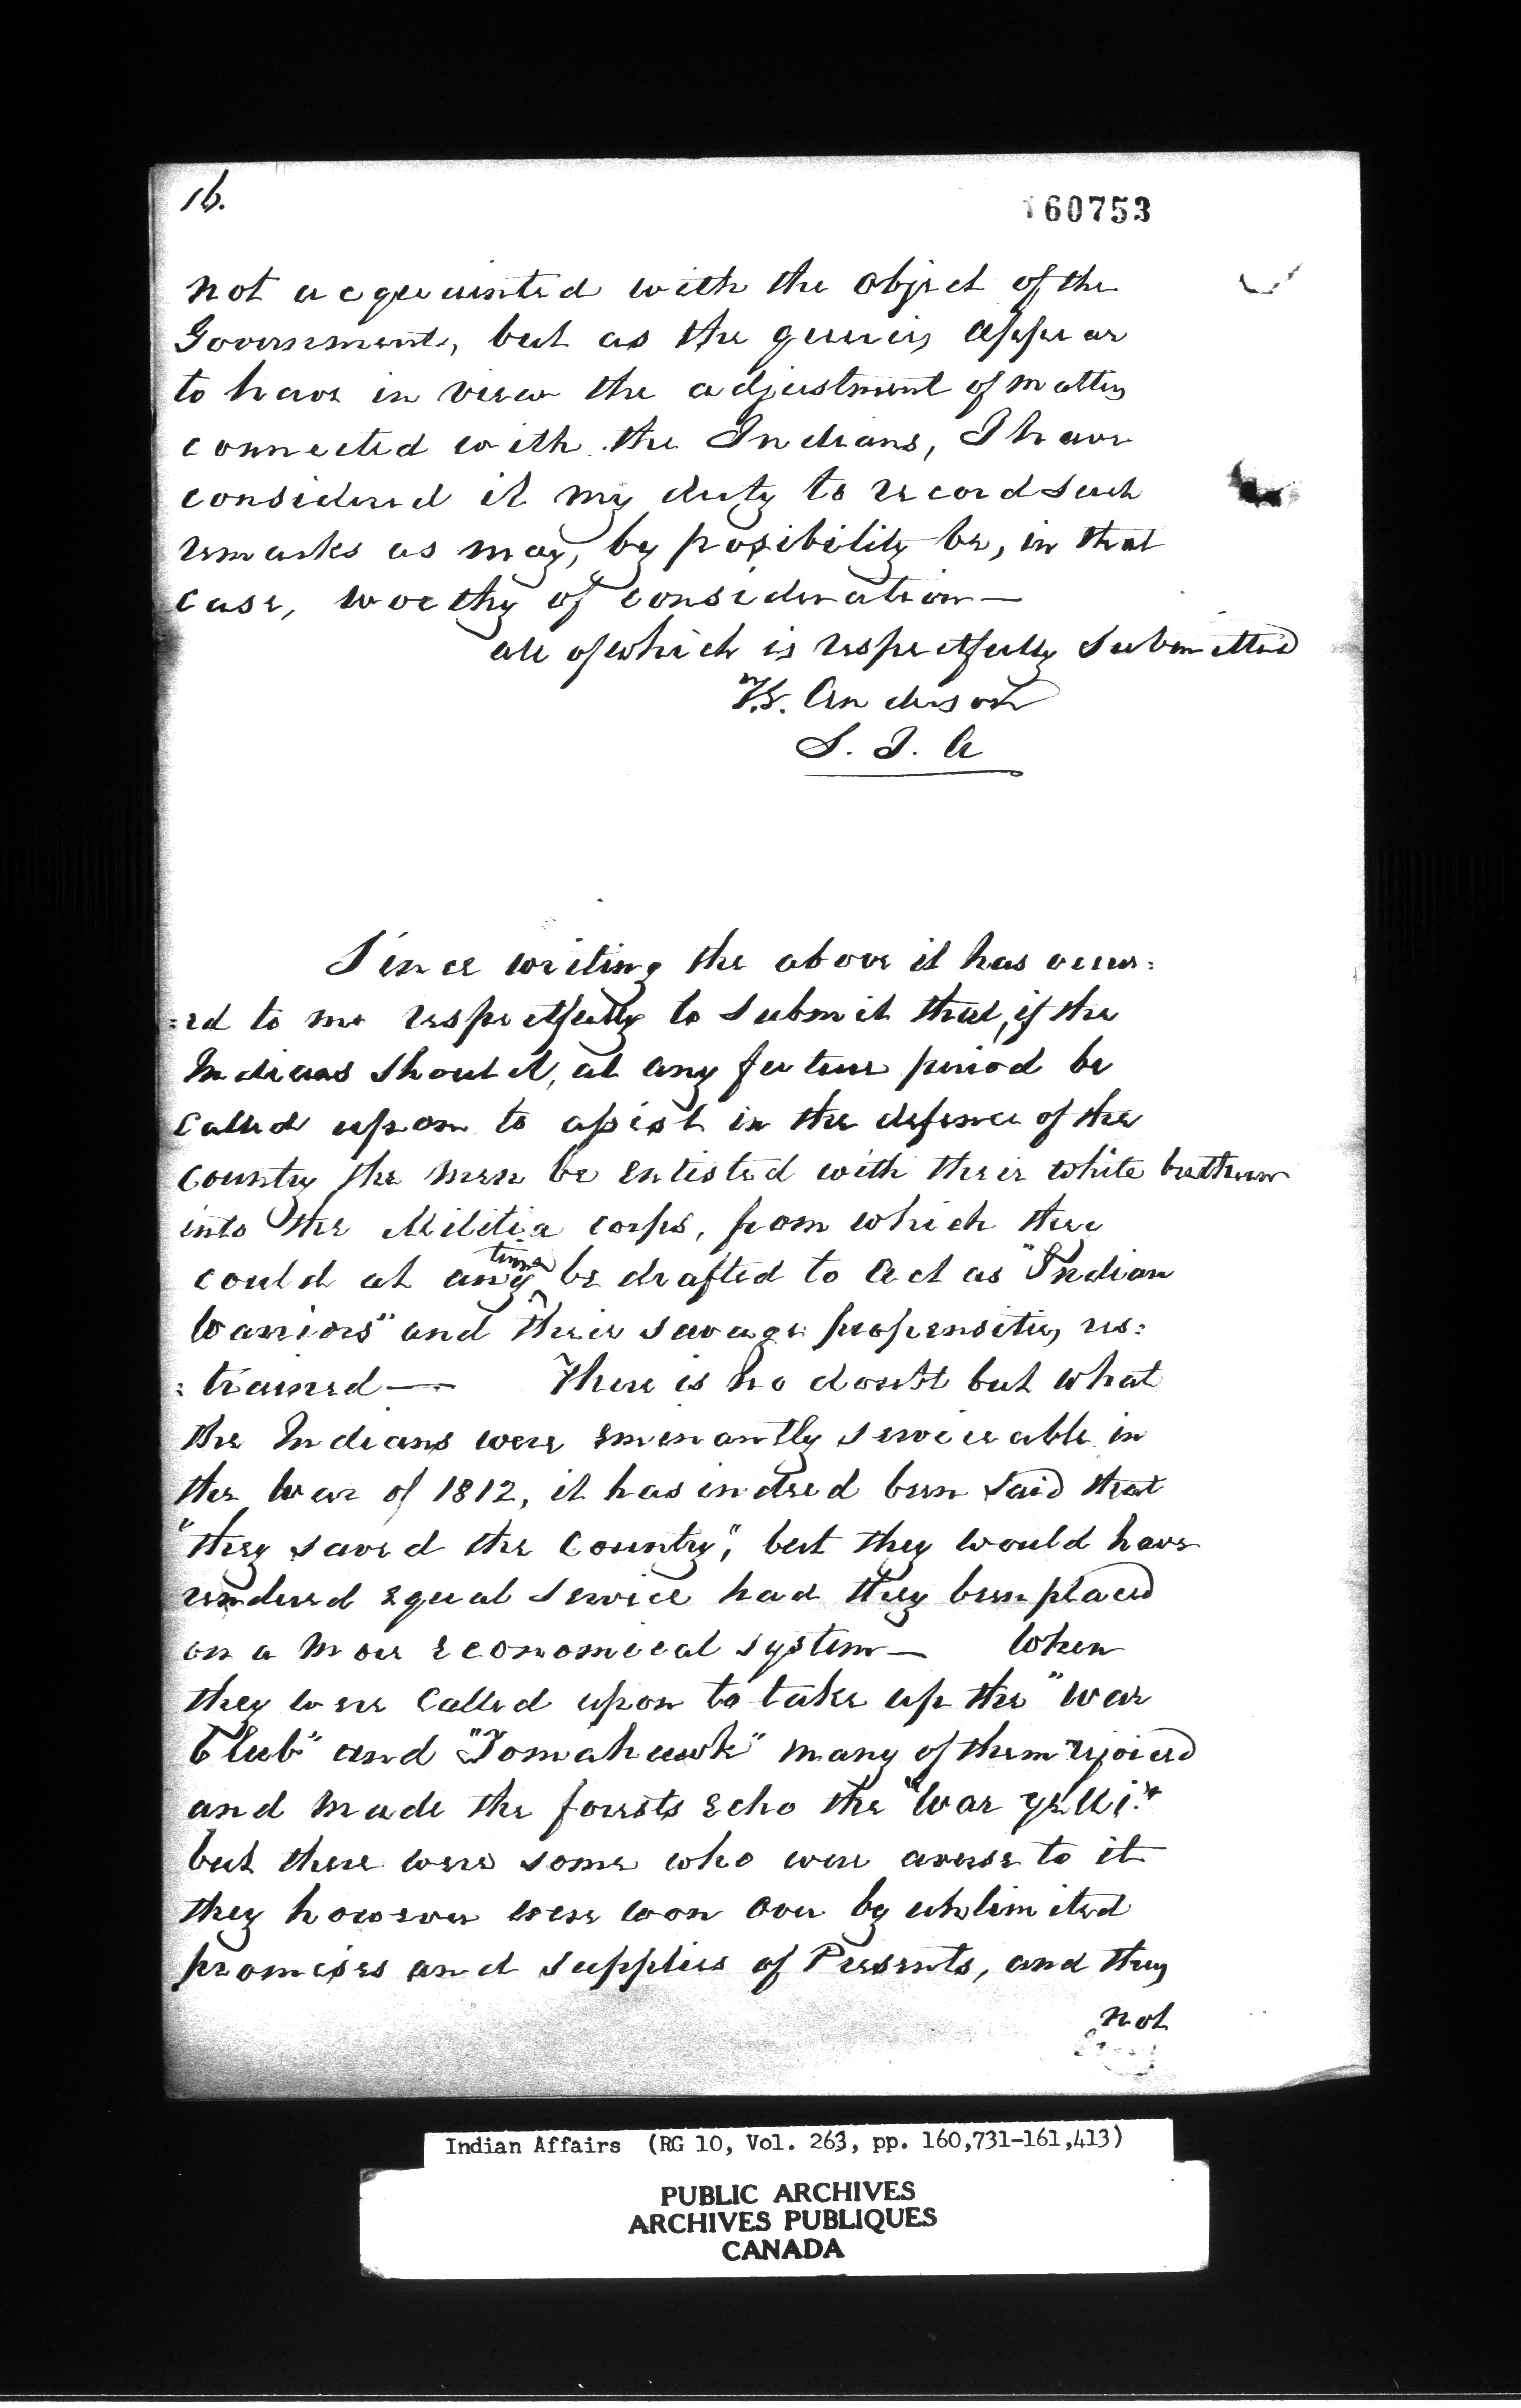 16.
160753
not acquainted with the object of the
Government, but as the queries appear
to have in view the adjustment of matters
connected with the Indians, I have
considered it my duty to record such
remarks as may, by possibility be, in that
case, worthy of consideration—
all of which is respectfully submitted
Anderson
S. I. A
Since writing the above it has occur=
=ed to me respectfully to submit that, if the
Indians should, at any future period be
called upon to assist in the defence of the
Country the men be enlisted with their white brethren
into the Militia corps, from which they
could at any time be drafted to act as "Indian
Warriors" and their savage propensities res=
=trained— There is no doubt but what
the Indians were eminantly serviceable in
the War of 1812, it has indeed been said that
"they saved the Country", but they would have
rendered equal service had they been placed
on a more economical system— When
they were called upon to take up the "War
Club" and "Tomahawk" many of them rejoiced
and made the forests echo the "War yell;"
but there were some who were averse to it
they however were won over by unlimited
promises and supplies of Presents, and they
not
Indian Affairs (RG 10, Vol. 263, pp. 160,731-161,413)
PUBLIC ARCHIVES
ARCHIVES PUBLIQUES
CANADA